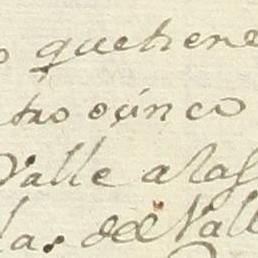 o quetiene
tro ocinco
Valle alas
las del Valle